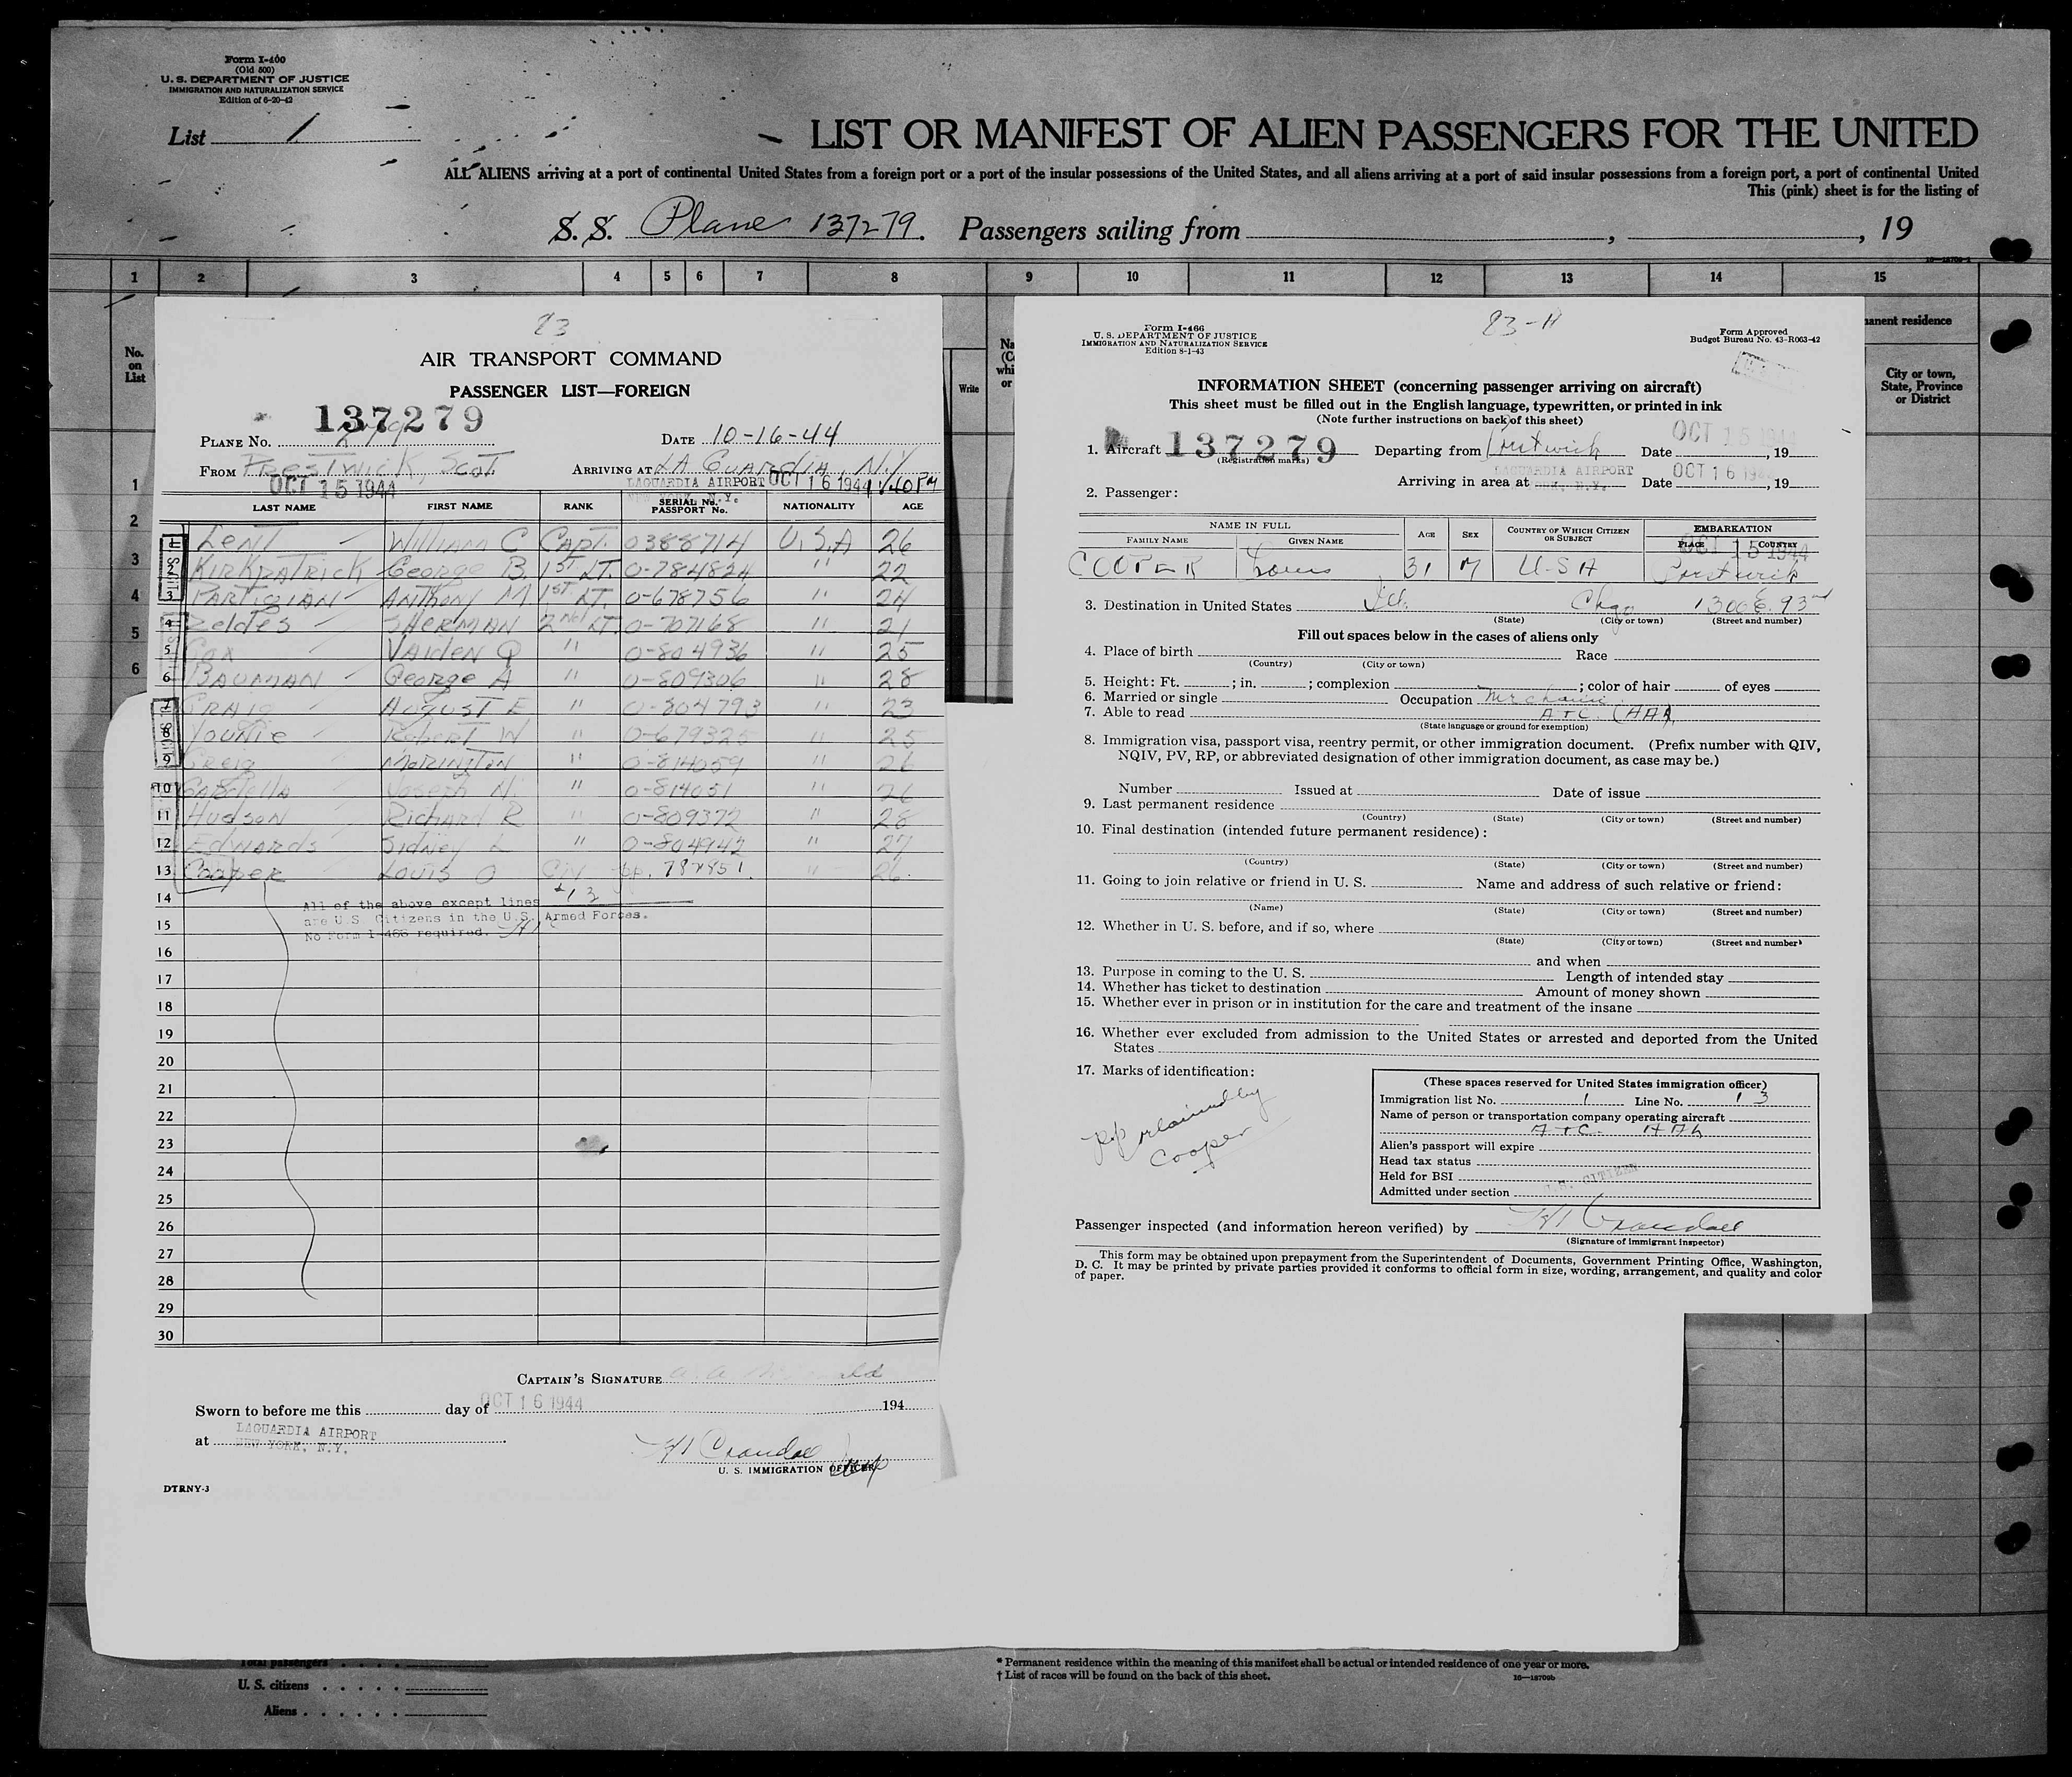 Form I-400
(Old 500)
U. S. DEPARTMENT OF JUSTICE
IMMIGRATION AND NATURALIZATION SERVICE
Edition of 6-20-42
List 1
LIST OR MANIFEST OF ALIEN PASSENGERS FOR THE UNITED
ALL ALIENS arriving at a port of continental United States from a foreign port or a port of the insular possessions of the United States, and all aliens arriving at a port of said insular possessions from a foreign port, a port of continental United
This (pink) sheet is for the listing of
S. S. Plane 137279. Passengers sailing from , , 19
1 2 3 4 5 6 7 8 9 10 11 12 13 14 15
No.
on
List
1
2
3
4
5
6
Write
City or town,
State, Province
or District
83
AIR TRANSPORT COMMAND
PASSENGER LIST—FOREIGN
137279
PLANE NO. 279 DATE 10-16-44
FROM PRESTWICK, SCOT. ARRIVING AT LA GUARDIA, N.Y
OCT 15 1944 LAGUARDIA AIRPORT OCT 16 1944 1:40 PM
NEW YORK, N.Y.
LAST NAME FIRST NAME RANK SERIAL NO. PASSPORT NO. NATIONALITY AGE
1 LENT William C Capt. 0388714 U.S.A 26
2 KIRKPATRICK George B. 1ST LT. 0-784824 " 22
3 PARTIGIAN ANTHONY M 1ST LT. 0-678756 " 24
4 Zeldes SHERMAN 2ND LT. 0-707168 " 21
5 Cox VAIDEN Q " 0-804936 " 25
6 BAUMAN George A " 0-809306 " 28
7 CRAIG AUGUST E " 0-804793 " 23
8 YOUNIE Robert W " 0-679325 " 25
9 Greig MORINGTON " 0-814059 " 26
10 Joseph N. " 0-814051 " 26
11 Hudson Richard R " 0-809372 " 28
12 Edwards Sidney L " 0-804942 " 27
13 Cooper Louis O CIV 787851. " 26.
14 All of the above except lines 13
15 are U.S. Citizens in the U.S. Armed Forces.
No Form I-466 required.
16
17
18
19
20
21
22
23
24
25
26
27
28
29
30
CAPTAIN'S SIGNATURE
Sworn to before me this day of OCT 16 1944 194
at LAGUARDIA AIRPORT
NEW YORK, N.Y.
Crandall
U. S. IMMIGRATION OFFICER
DTRNY-3
Form I-466
U. S. DEPARTMENT OF JUSTICE
IMMIGRATION AND NATURALIZATION SERVICE
Edition 8-1-43
83-H
Form Approved
Budget Bureau No. 43-R063-42
INFORMATION SHEET (concerning passenger arriving on aircraft)
This sheet must be filled out in the English language, typewritten, or printed in ink
(Note further instructions on back of this sheet)
1. Aircraft 137279 Departing from Prestwick Date OCT 15 1944, 19
(Registration marks)
Arriving in area at LAGUARDIA AIRPORT N.Y. Date OCT 16 194, 19
2. Passenger:
NAME IN FULL AGE SEX COUNTRY OF WHICH CITIZEN OR SUBJECT EMBARKATION
FAMILY NAME GIVEN NAME PLACE COUNTRY
OCT 15 1944
COOPER Louis 31 M U-S A Prestwick
3. Destination in United States Ill. Chgo 1300 E. 93rd
(State) (City or town) (Street and number)
Fill out spaces below in the cases of aliens only
4. Place of birth Race
(Country) (City or town)
5. Height: Ft. ; in. ; complexion ; color of hair of eyes
6. Married or single Occupation Mechanic
7. Able to read ATC (HAA)
(State language or ground for exemption)
8. Immigration visa, passport visa, reentry permit, or other immigration document. (Prefix number with QIV,
NQIV, PV, RP, or abbreviated designation of other immigration document, as case may be.)
Number Issued at Date of issue
9. Last permanent residence
(Country) (State) (City or town) (Street and number)
10. Final destination (intended future permanent residence):
(Country) (State) (City or town) (Street and number)
11. Going to join relative or friend in U. S. Name and address of such relative or friend:
(Name) (State) (City or town) (Street and number)
12. Whether in U. S. before, and if so, where
(State) (City or town) (Street and number)
and when
13. Purpose in coming to the U. S. Length of intended stay
14. Whether has ticket to destination Amount of money shown
15. Whether ever in prison or in institution for the care and treatment of the insane
16. Whether ever excluded from admission to the United States or arrested and deported from the United
States
17. Marks of identification:
pp reclaimed by
Cooper
(These spaces reserved for United States immigration officer)
Immigration list No. 1 Line No. 13
Name of person or transportation company operating aircraft
ATC.
Alien's passport will expire
Head tax status
Held for BSI
U.S. CITIZEN
Admitted under section
Passenger inspected (and information hereon verified) by Crandall
(Signature of Immigrant Inspector)
This form may be obtained upon prepayment from the Superintendent of Documents, Government Printing Office, Washington,
D. C. It may be printed by private parties provided it conforms to official form in size, wording, arrangement, and quality and color
of paper.
Total passengers
U. S. citizens
Aliens
* Permanent residence within the meaning of this manifest shall be actual or intended residence of one year or more.
† List of races will be found on the back of this sheet.
16—18709b